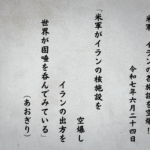 米軍、イランの核施設を空爆!
令和七年六月二十四日
「米軍がイランの核施設を
空爆し
イランの出方を
世界が固唾を呑んでみている」
（あおぎり）